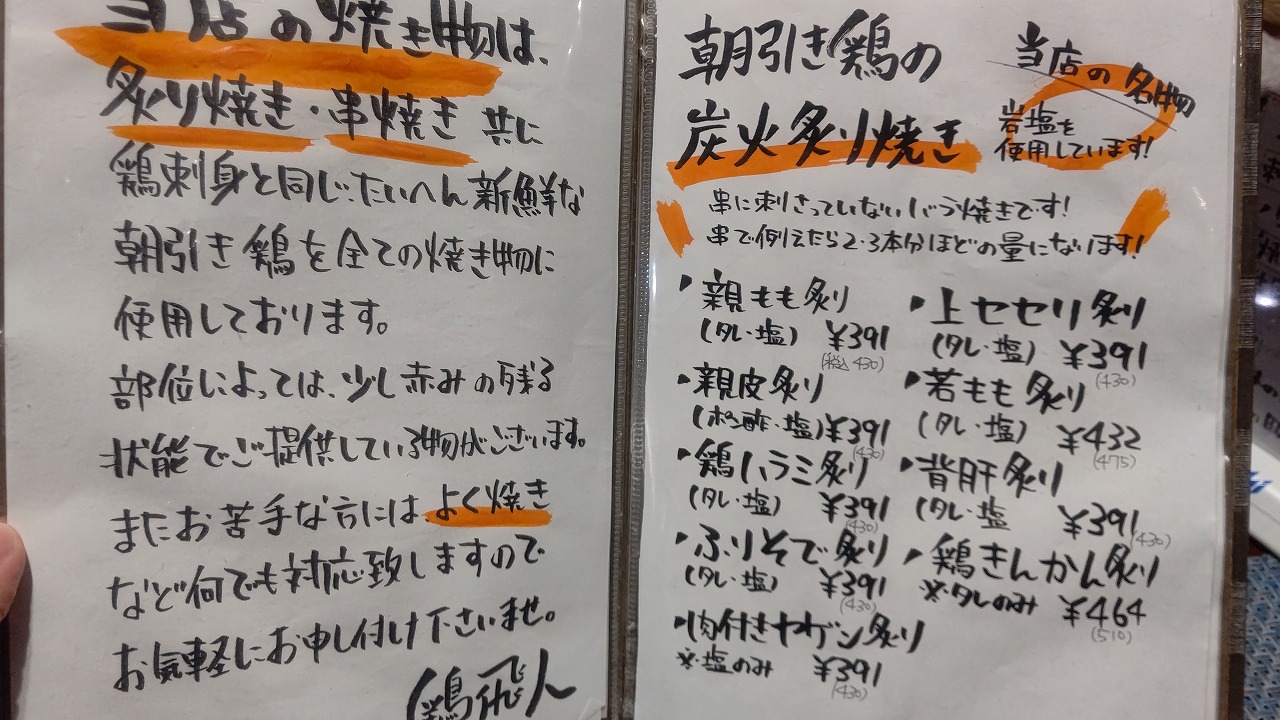 当店の焼き物は、
炙り焼き・串焼き 共に
鶏刺身と同じ、たいへん新鮮な
朝引き鶏を全ての焼き物に
使用しております。
部位によっては、少し赤みの残る
状態でご提供している物がございます。
またお苦手な方には、よく焼き
など何でも対応致しますので
お気軽にお申し付け下さいませ。
鶏飛人
朝引き鶏の
炭火炙り焼き
当店の名物
岩塩を
使用しています!
串に刺さっていないバラ焼きです!
串で例えたら2・3本分ほどの量になります!
・親もも炙り
(タレ・塩) ¥391
(税込430)
・親皮炙り
(ポン酢・塩) ¥391
(430)
・鶏ハラミ炙り
(タレ・塩) ¥391
(430)
・ふりそで炙り
(タレ・塩) ¥391
(430)
・肉付きヤゲン炙り
※塩のみ ¥391
(430)
・上セセリ炙り
(タレ・塩) ¥391
(430)
・若もも炙り
(タレ・塩) ¥432
(475)
・背肝炙り
(タレ・塩 ¥391
(430)
・鶏きんかん炙り
※タレのみ ¥464
(510)